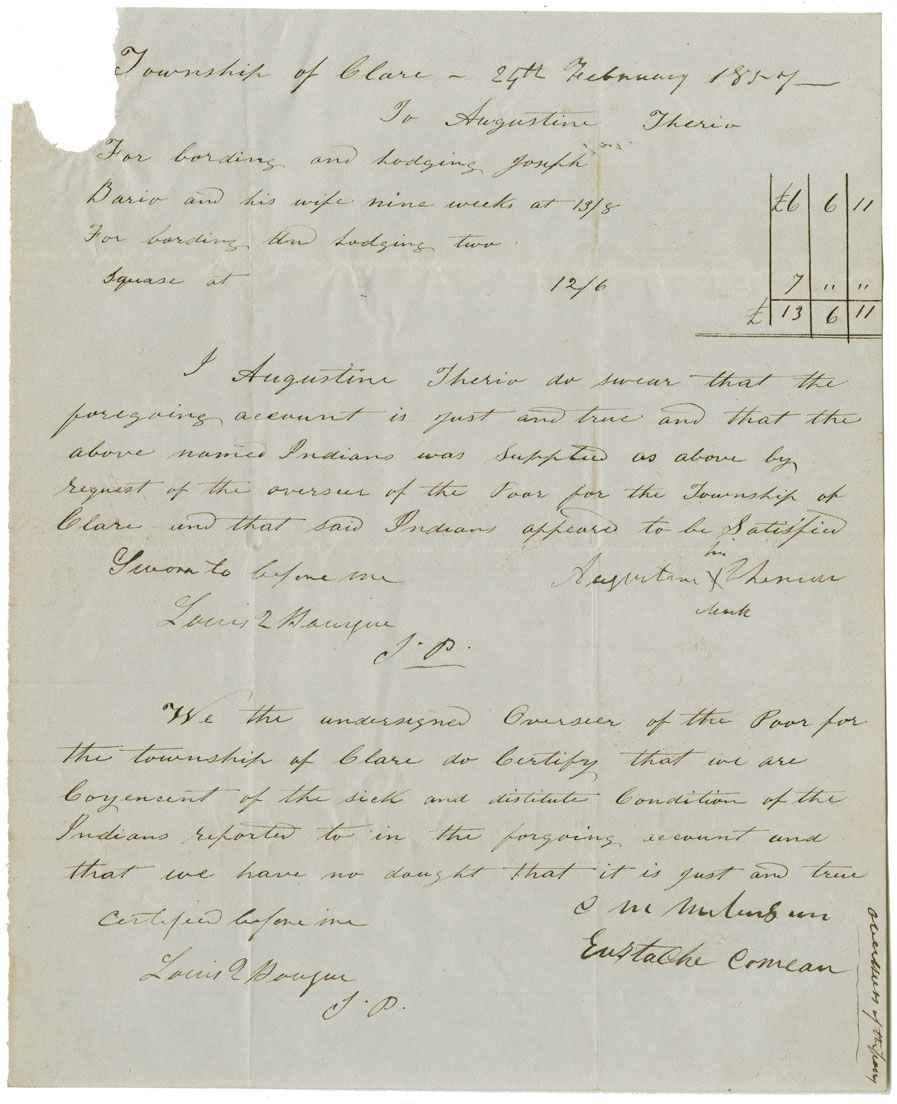 Township of Clare - 24th February 1857
To Augustine Therio
For bording and Lodging Joseph
Bario and his wife nine weeks at 13/8 £6 6 11
For bording And Lodging two
Squase at 12/6 7 " "
£ 13 6 11
I Augustine Therio do swear that the
foregoing account is just and true and that the
above named Indians was Supplied as above by
request of the overseer of the Poor for the Township of
Clare and that said Indians appeard to be Satisfied
Sworn to before me
his
Augustin X Theriau
Mark
Louis Q Bourque
J. P.
We the undersigned Overseer of the Poor for
the township of Clare do Certify that we are
Coyencent of the sick and distitute Condition of the
Indians reported to in the forgoing account and
that we have no dought that it is just and true
Certified before me
C M
Eustache Comeau
overseers of the poor
Louis Q Bourque
J. P.